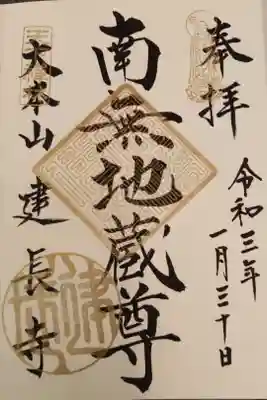 奉拝
令和三年
一月三十日
南無地蔵尊
大本山 建長寺